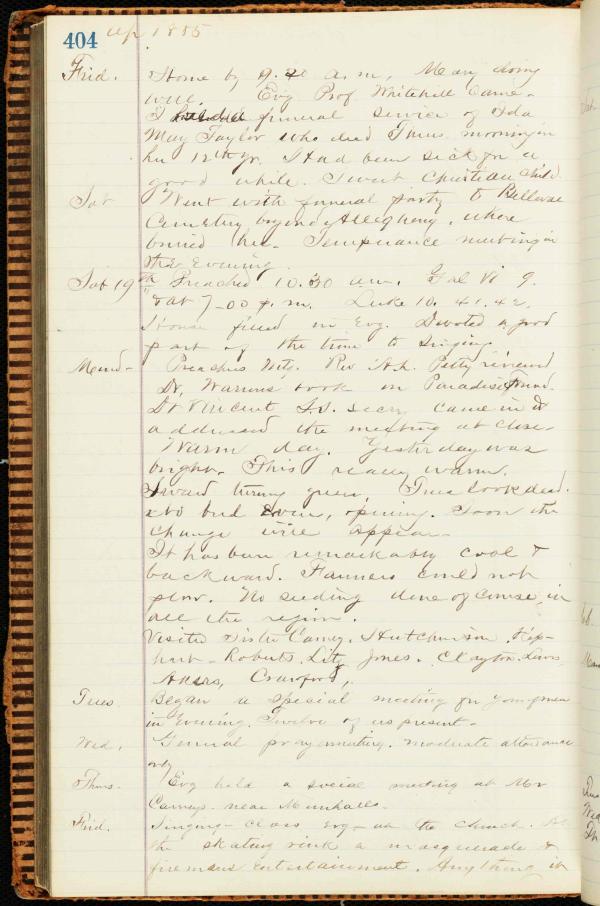 404 Apr 1885
Frid. Home by 9. a.m. Mary doing
well. Evg Prof Whitehill came.
I funeral service of Ida
May Taylor who died Thurs morning in
her 12th yr. Had been sick for a
good while. Sweet Christian child.
Sat Went with funeral party to Bellevue
Cemetery beyond Allegheny, where
buried her. Temperance meeting in
the Evening
Sab 19th Preached 10.30 a.m. Gal VI 9.
& at 7-00 p.m. Luke 10. 41.42.
House filled in Evg. Devoted a good
part of the time to singing
Mond- Preachers Mtg. Rev A.L. Petty reviewed
Dr. Warrens book on Paradise Found.
Dr Vincent S.S. secy came in &
addressed the meeting at close.
Warm day. Yesterday was
bright. This really warm.
Sward turning green. Trees look dead.
No bud even, opening. Soon the
change will appear.
It has been remarkably cool &
backward. Farmers could not
plow. No seeding done of course in
all the region.
Visited Sister Carney. Hutchinson.
Roberts. Jones. Clayton.
Akers, Crawford,
Tues Began a special meeting for young men
in Evening. Twelve of us present.
Wed. General prayermeeting. moderate attendance
only
Thurs. Evg held a social meeting at Mr
Carneys. near Munhalls.
Frid. Singing-class Evg-at the church. At
the skating rink a masquerade &
firemans entertainment. Anything in